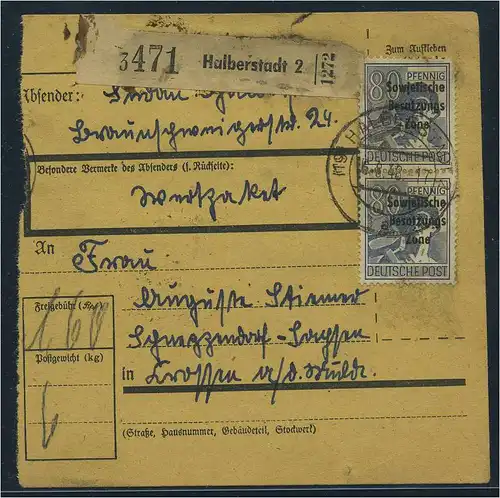 3471 Halberstadt 2 1272
Zum Aufkleben
Absender:
Braunschweigerstr. 24.
80 PFENNIG
Sowjetische
Besatzungs
Zone
DEUTSCHE POST
80 PFENNIG
Sowjetische
Besatzungs
Zone
DEUTSCHE POST
(19
48
Besondere Vermerke des Absenders (s. Rückseite):
Wertpaket
An
Frau
Freigebühr
1,60
Auguste Stiemer
Schneppendorf-Sachsen
Postgewicht (kg)
in Crossen a/d. Mulde.
6
(Straße, Hausnummer, Gebäudeteil, Stockwerk)